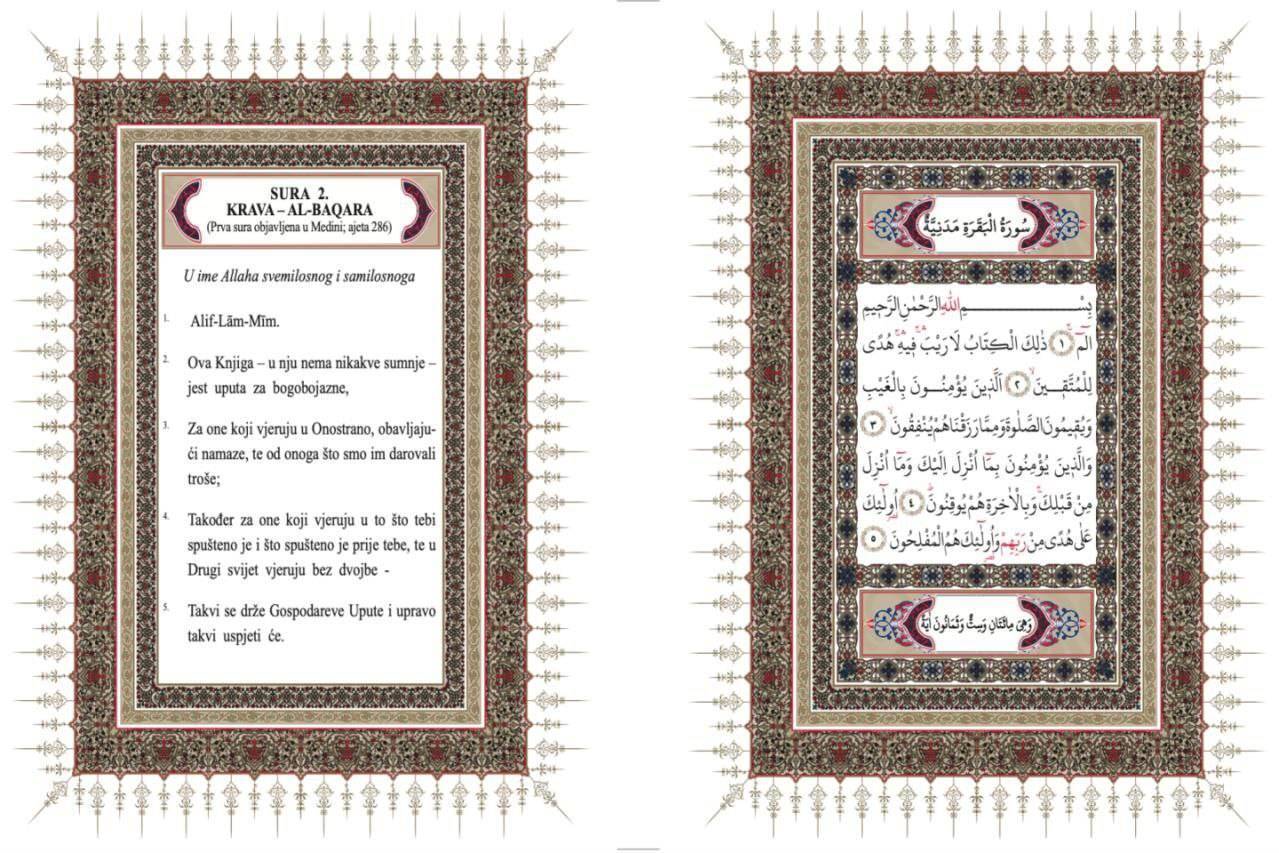 SURA 2.
KRAVA – AL-BAQARA
(Prva sura objavljena u Medini; ajeta 286)
U ime Allaha svemilosnog i samilosnoga
1. Alif-Lām-Mīm.
2. Ova Knjiga – u nju nema nikakve sumnje –
jest uputa za bogobojazne,
3. Za one koji vjeruju u Onostrano, obavljaju-
ći namaze, te od onoga što smo im darovali
troše;
4. Također za one koji vjeruju u to što tebi
spušteno je i što spušteno je prije tebe, te u
Drugi svijet vjeruju bez dvojbe -
5. Takvi se drže Gospodareve Upute i upravo
takvi uspjeti će.
سُورَةُ الْبَقَرَةِ مَدَنِيَّةٌ
بِسْـــمِ اللّٰهِ الرَّحْمٰنِ الرَّحٖيمِ
الٓمٓ ۚ ﴿١﴾ ذٰلِكَ الْكِتَابُ لَا رَيْبَۚۛ فٖيهِۚۛ هُدًى
لِلْمُتَّقٖينَۙ ﴿٢﴾ اَلَّذٖينَ يُؤْمِنُونَ بِالْغَيْبِ
وَيُقٖيمُونَ الصَّلٰوةَ وَمِمَّا رَزَقْنَاهُمْ يُنْفِقُونَۙ ﴿٣﴾
وَالَّذٖينَ يُؤْمِنُونَ بِمَٓا اُنْزِلَ اِلَيْكَ وَمَٓا اُنْزِلَ
مِنْ قَبْلِكَۚ وَبِالْاٰخِرَةِ هُمْ يُوقِنُونَۜ ﴿٤﴾ اُو۬لٰٓئِكَ
عَلٰى هُدًى مِنْ رَبِّهِمْ وَاُو۬لٰٓئِكَ هُمُ الْمُفْلِحُونَ ﴿٥﴾
وَهِىَ مِائَتَانِ وَسِتٌّ وَثَمَانُونَ اٰيَةً